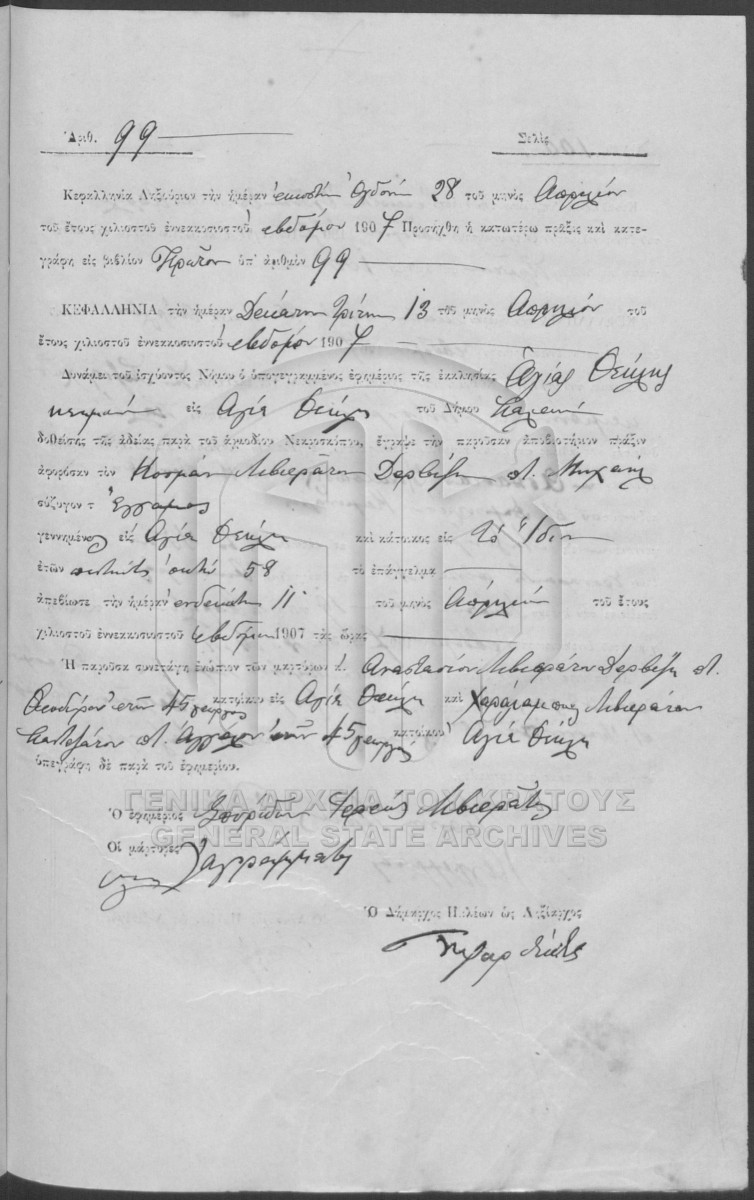 Ἀριθ. 99 Σελὶς
Κεφαλληνία Ληξούριον τὴν ἡμέραν εἰκοστὴν ὀγδόην 28 τοῦ μηνὸς Ἀπριλίου
τοῦ ἔτους χιλιοστοῦ ἐννεακοσιοστοῦ ἑβδόμου 1907 Προσήχθη ἡ κατωτέρω πρᾶξις καὶ κατε-
γράφη εἰς βιβλίον Πρῶτον ὑπ' ἀριθμὸν 99
ΚΕΦΑΛΛΗΝΙΑ τὴν ἡμέραν Δεκάτην Τρίτην 13 τοῦ μηνὸς Ἀπριλίου τοῦ
ἔτους χιλιοστοῦ ἐννεακοσιοστοῦ ἑβδόμου 1907
Δυνάμει τοῦ ἰσχύοντος Νόμου ὁ ὑπογεγραμμένος ἐφημέριος τῆς ἐκκλησίας Ἁγίας Θέκλης
εἰς Ἁγία Θέκλη τοῦ Δήμου
δοθείσης τῆς ἀδείας παρὰ τοῦ ἁρμοδίου Νεκροσκόπου, ἔγραψε τὴν παροῦσαν ἀποβιωτήριον πρᾶξιν
ἀφορῶσαν τὸν Κοσμᾶν Λιβιεράτον Δερβίζη π. Μιχαήλ
σύζυγον τ Ἔγγαμος
γεννημένος εἰς Ἁγία Θέκλη καὶ κάτοικος εἰς τὸ Ἴδιον
ἐτῶν πενήντα ὀκτώ 58 τὸ ἐπάγγελμα
ἀπεβίωσε τὴν ἡμέραν ἑνδεκάτην 11 τοῦ μηνὸς Ἀπριλίου τοῦ ἔτους
χιλιοστοῦ ἐννεακοσιοστοῦ ἑβδόμου 1907 τὰς ὥρας
Ἡ παροῦσα συνετάγη ἐνώπιον τῶν μαρτύρων κ. Ἀναστασίου Λιβιεράτου Δερβίζη π.
ἐτῶν 45 γεωργὸς κατοίκου εἰς Ἁγία Θέκλη καὶ Χαράλαμπος Λιβιεράτον
π. ἐτῶν 45 γεωργὸς κατοίκου Ἁγία Θέκλη
ὑπεγράφη δὲ παρὰ τοῦ ἐφημερίου.
ΓΕΝΙΚΑ ΑΡΧΕΙΑ ΤΟΥ ΚΡΑΤΟΥΣ
Ὁ ἐφημέριος Σπυρίδων Ἱερεὺς Λιβιεράτος
GENERAL STATE ARCHIVES
Οἱ μάρτυρες ἀγράμματοι
Ὁ Δήμαρχος Παλέων ὡς Ληξίαρχος